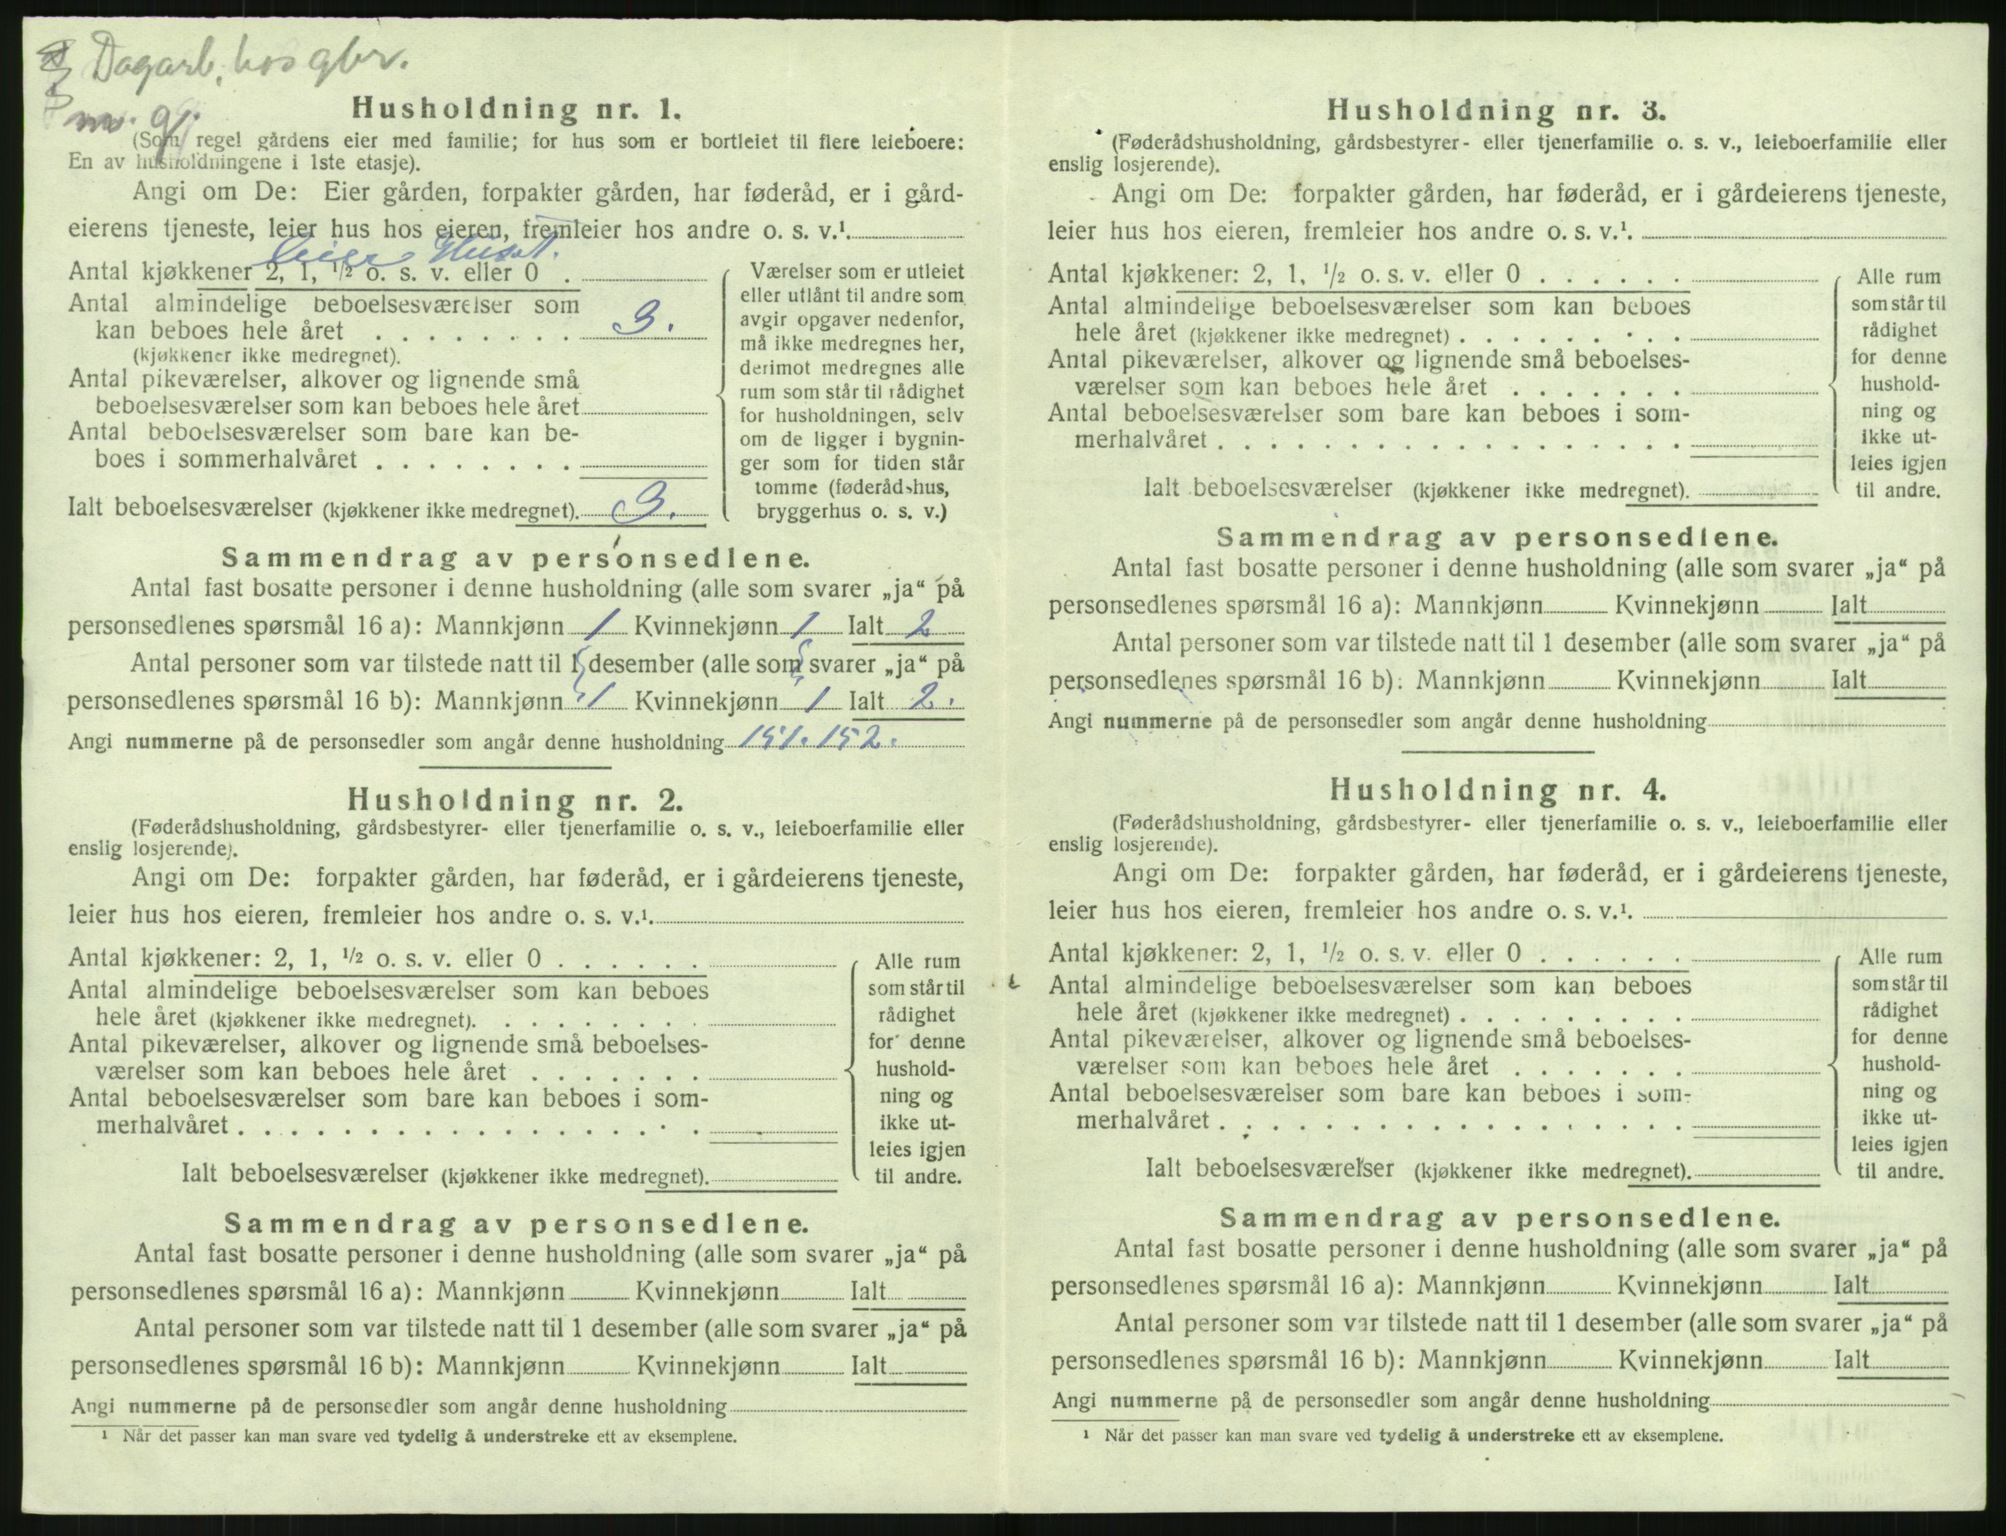 Dagarb. hos gbr.
m. gj.
Husholdning nr. 1.
(Som regel gårdens eier med familie; for hus som er bortleiet til flere leieboere:
En av husholdningene i 1ste etasje).
Angi om De: Eier gården, forpakter gården, har føderåd, er i gård-
eierens tjeneste, leier hus hos eieren, fremleier hos andre o. s. v.¹.
Eier Huset.
Antal kjøkkener 2, 1, ½ o. s. v. eller 0 .
Antal almindelige beboelsesværelser som
kan beboes hele året . . . . . . . . 3.
(kjøkkener ikke medregnet).
Antal pikeværelser, alkover og lignende små
beboelsesværelser som kan beboes hele året
Antal beboelsesværelser som bare kan be-
boes i sommerhalvåret . . . . . . . .
Ialt beboelsesværelser (kjøkkener ikke medregnet). 3.
Værelser som er utleiet
eller utlånt til andre som
avgir opgaver nedenfor,
må ikke medregnes her,
derimot medregnes alle
rum som står til rådighet
for husholdningen, selv
om de ligger i bygnin-
ger som for tiden står
tomme (føderådshus,
bryggerhus o. s. v.)
Sammendrag av personsedlene.
Antal fast bosatte personer i denne husholdning (alle som svarer „ja“ på
personsedlenes spørsmål 16 a): Mannkjønn 1 Kvinnekjønn 1 Ialt 2
Antal personer som var tilstede natt til 1 desember (alle som svarer „ja“ på
personsedlenes spørsmål 16 b): Mannkjønn 1 Kvinnekjønn 1 Ialt 2.
Angi nummerne på de personsedler som angår denne husholdning 151. 152.
Husholdning nr. 2.
(Føderådshusholdning, gårdsbestyrer- eller tjenerfamilie o. s. v., leieboerfamilie eller
enslig losjerende).
Angi om De: forpakter gården, har føderåd, er i gårdeierens tjeneste,
leier hus hos eieren, fremleier hos andre o. s. v.¹.
Antal kjøkkener: 2, 1, ½ o. s. v. eller 0 . . . . . .
Antal almindelige beboelsesværelser som kan beboes
hele året (kjøkkener ikke medregnet). . . . . . . . .
Antal pikeværelser, alkover og lignende små beboelses-
værelser som kan beboes hele året . . . . . . .
Antal beboelsesværelser som bare kan beboes i som-
merhalvåret . . . . . . . . . . . . . . . . . .
Ialt beboelsesværelser (kjøkkener ikke medregnet).
Alle rum
som står til
rådighet
for denne
hushold-
ning og
ikke ut-
leies igjen
til andre.
Sammendrag av personsedlene.
Antal fast bosatte personer i denne husholdning (alle som svarer „ja“ på
personsedlenes spørsmål 16 a): Mannkjønn Kvinnekjønn Ialt
Antal personer som var tilstede natt til 1 desember (alle som svarer „ja“ på
personsedlenes spørsmål 16 b): Mannkjønn Kvinnekjønn Ialt
Angi nummerne på de personsedler som angår denne husholdning
¹ Når det passer kan man svare ved tydelig å understreke ett av eksemplene.
Husholdning nr. 3.
(Føderådshusholdning, gårdsbestyrer- eller tjenerfamilie o. s. v., leieboerfamilie eller
enslig losjerende).
Angi om De: forpakter gården, har føderåd, er i gårdeierens tjeneste,
leier hus hos eieren, fremleier hos andre o. s. v.¹.
Antal kjøkkener: 2, 1, ½ o. s. v. eller 0 . . . . . .
Antal almindelige beboelsesværelser som kan beboes
hele året (kjøkkener ikke medregnet) . . . . . . . . .
Antal pikeværelser, alkover og lignende små beboelses-
værelser som kan beboes hele året . . . . . . .
Antal beboelsesværelser som bare kan beboes i som-
merhalvåret . . . . . . . . . . . . . . . . . .
Ialt beboelsesværelser (kjøkkener ikke medregnet).
Alle rum
som står til
rådighet
for denne
hushold-
ning og
ikke ut-
leies igjen
til andre.
Sammendrag av personsedlene.
Antal fast bosatte personer i denne husholdning (alle som svarer „ja“ på
personsedlenes spørsmål 16 a): Mannkjønn Kvinnekjønn Ialt
Antal personer som var tilstede natt til 1 desember (alle som svarer „ja“ på
personsedlenes spørsmål 16 b): Mannkjønn Kvinnekjønn Ialt
Angi nummerne på de personsedler som angår denne husholdning
Husholdning nr. 4.
(Føderådshusholdning, gårdsbestyrer- eller tjenerfamilie o. s. v., leieboerfamilie eller
enslig losjerende).
Angi om De: forpakter gården, har føderåd, er i gårdeierens tjeneste,
leier hus hos eieren, fremleier hos andre o. s. v.¹.
Antal kjøkkener: 2, 1, ½ o. s. v. eller 0 . . . . . .
Antal almindelige beboelsesværelser som kan beboes
hele året (kjøkkener ikke medregnet) . . . . . . . . .
Antal pikeværelser, alkover og lignende små beboelses-
værelser som kan beboes hele året . . . . . . .
Antal beboelsesværelser som bare kan beboes i som-
merhalvåret . . . . . . . . . . . . . . . . . .
Ialt beboelsesværelser (kjøkkener ikke medregnet).
Alle rum
som står til
rådighet
for denne
hushold-
ning og
ikke ut-
leies igjen
til andre.
Sammendrag av personsedlene.
Antal fast bosatte personer i denne husholdning (alle som svarer „ja“ på
personsedlenes spørsmål 16 a): Mannkjønn Kvinnekjønn Ialt
Antal personer som var tilstede natt til 1 desember (alle som svarer „ja“ på
personsedlenes spørsmål 16 b): Mannkjønn Kvinnekjønn Ialt
Angi nummerne på de personsedler som angår denne husholdning
¹ Når det passer kan man svare ved tydelig å understreke ett av eksemplene.